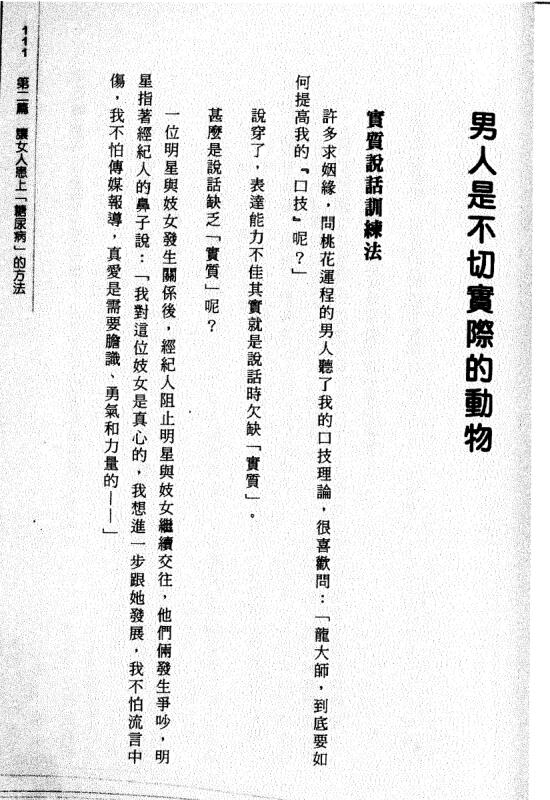 男人是不切實際的動物
實質說話訓練法
許多求姻緣，問桃花運程的男人聽了我的口技理論，很喜歡問：「龍大師，到底要如
何提高我的『口技』呢？」
說穿了，表達能力不佳其實就是說話時欠缺「實質」。
甚麼是說話缺乏「實質」呢？
一位明星與妓女發生關係後，經紀人阻止明星與妓女繼續交往，他們倆發生爭吵，明
星指著經紀人的鼻子說：「我對這位妓女是真心的，我想進一步跟她發展，我不怕流言中
傷，我不怕傳媒報導，真愛是需要膽識、勇氣和力量的——」
111 第二篇 讓女人患上「糖尿病」的方法